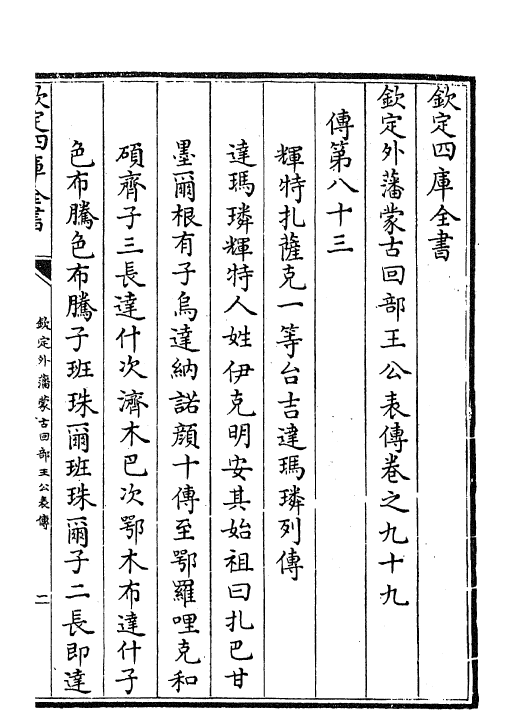 欽定四庫全書
欽定外藩蒙古回部王公表傳卷之九十九
傳第八十三
輝特扎薩克一等台吉達瑪璘列傳
達瑪璘輝特人姓伊克明安其始祖曰扎巴甘
墨爾根有子烏達納諾顏十傳至鄂羅哩克和
碩齊子三長達什次濟木巴次鄂木布達什子
色布騰色布騰子班珠爾班珠爾子二長即達
欽定四庫全書
欽定外藩蒙古回部王公表傳